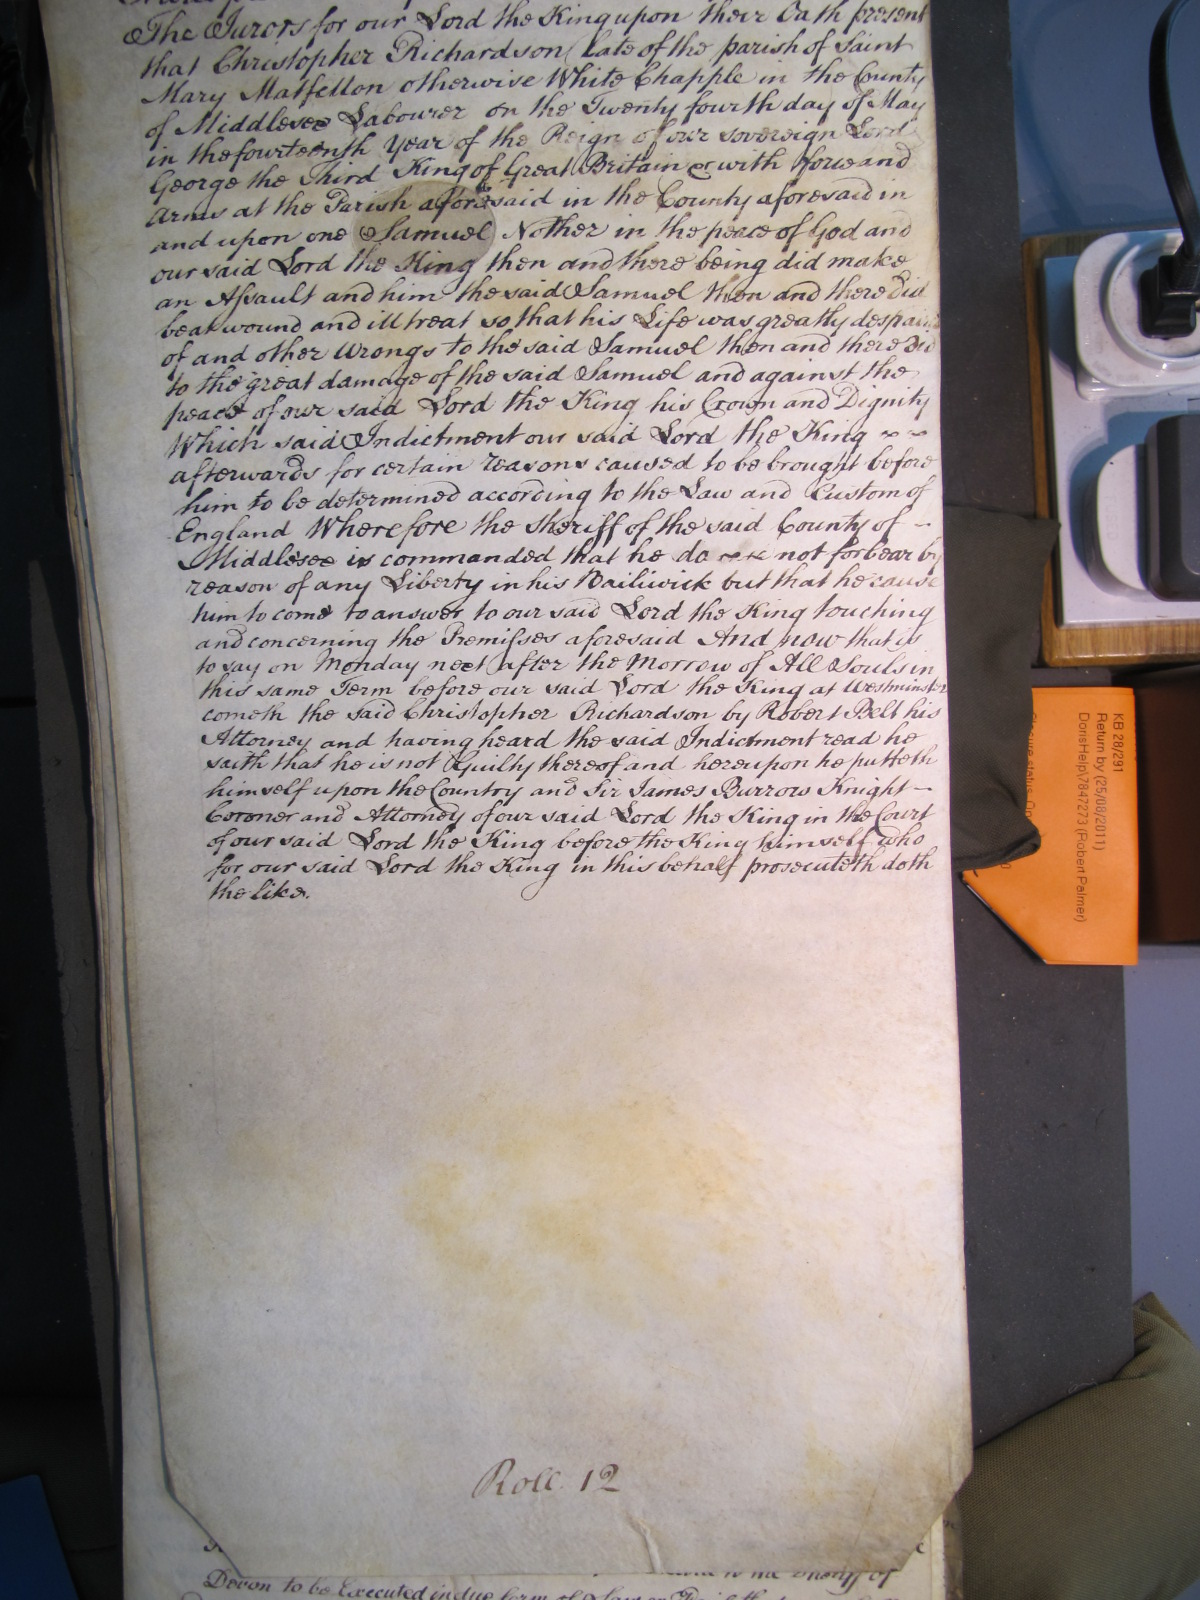 The Jurors for our Lord the King upon their Oath present
that Christopher Richardson late of the parish of Saint
Mary Matfellon otherwise White Chapple in the County
of Middlesex Labourer on the Twenty fourth day of May
in the fourteenth Year of the Reign of our sovereign Lord
George the Third King of Great Britain &c with force and
Arms at the Parish aforesaid in the County aforesaid in
and upon one Samuel Nother in the peace of God and
our said Lord the King then and there being did make
an Assault and him the said Samuel then and there did
beat wound and ill treat so that his Life was greatly despaired
of and other Wrongs to the said Samuel then and there did
to the great damage of the said Samuel and against the
peace of our said Lord the King his Crown and Dignity
Which said Indictment our said Lord the King
afterwards for certain reasons caused to be brought before
him to be determined according to the Law and Custom of
England Wherefore the Sheriff of the said County of
Middlesex is commanded that he do not forbear by
reason of any Liberty in his Bailiwick but that he cause
him to come to answer to our said Lord the King touching
and concerning the Premisses aforesaid And now that is
to say on Monday next after the Morrow of All Souls in
this same Term before our said Lord the King at Westminster
cometh the said Christopher Richardson by Robert Belt his
Attorney and having heard the said Indictment read he
saith that he is not Guilty thereof and hereupon he putteth
himself upon the Country and Sir James Burrow Knight
Coroner and Attorney of our said Lord the King in the Court
of our said Lord the King before the King himself who
for our said Lord the King in this behalf prosecuteth doth
the like.
Roll 12
Devon to be Executed in due form of Law
KB 28/291
Return by (25/08/2011)
DorisHelp\7847273 (Robert Palmer)